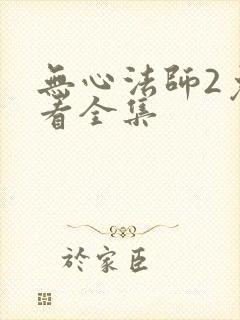 無心法師2
看全集
於家臣